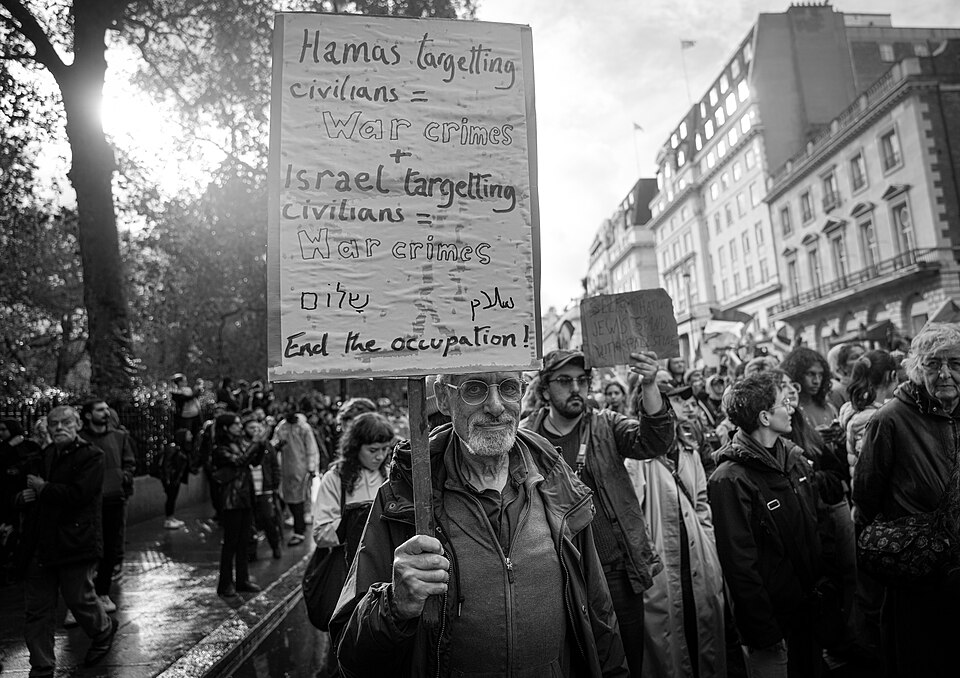 Hamas targetting
civilians =
War crimes
+
Israel targetting
civilians =
War crimes
שלום سلام
End the occupation!
JEWS STAND